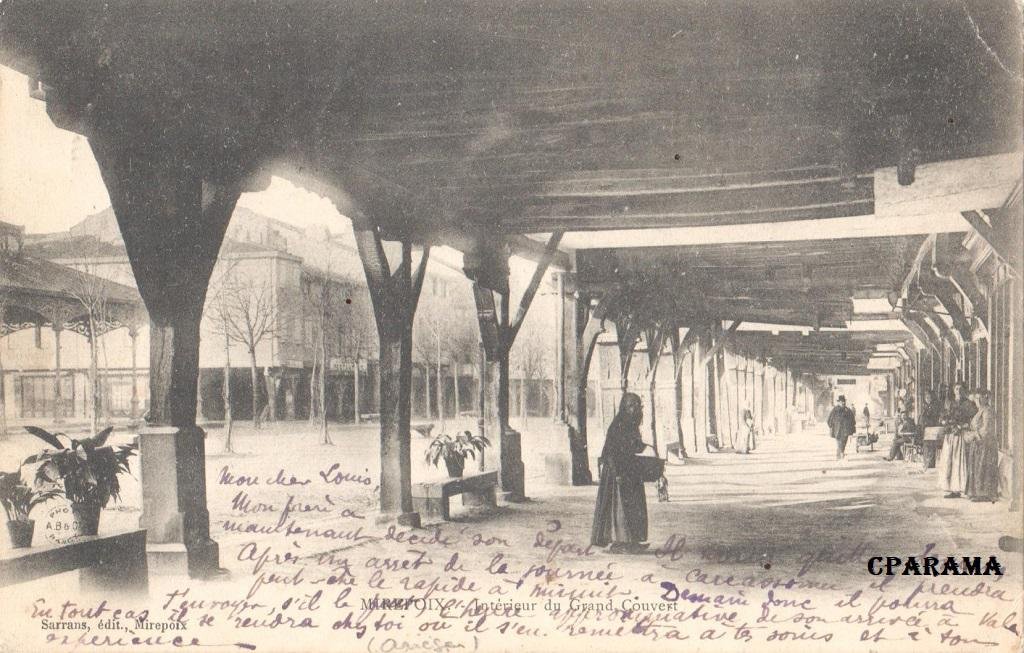 Mon cher Louis,
Mon frère a
maintenant décidé son départ Il
Après un arrêt de la journée a Carcassonne prendra
peut-être le rapide à minuit. Demain donc il pourra
En tout cas t'envoyer, s'il le approximative de son arrivée à
il se rendra chez toi où il s'en remettra à tes soins et à ton
expérience
MIREPOIX - Intérieur du Grand Couvert
Sarrans, édit., Mirepoix
(Ariège)
A.B & C
CPARAMA